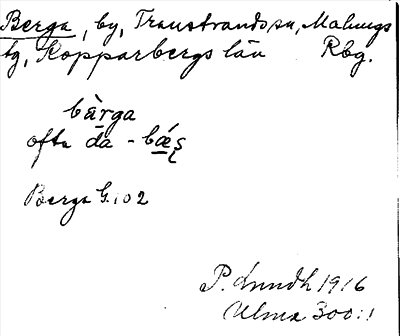 Berga, by, Transtrands sn, Malungs
tg, Kopparbergs län Rbg.
bàrga
ofta da - bǽ
Berga G.102
P. Lundh 1916
Ulma 300:1